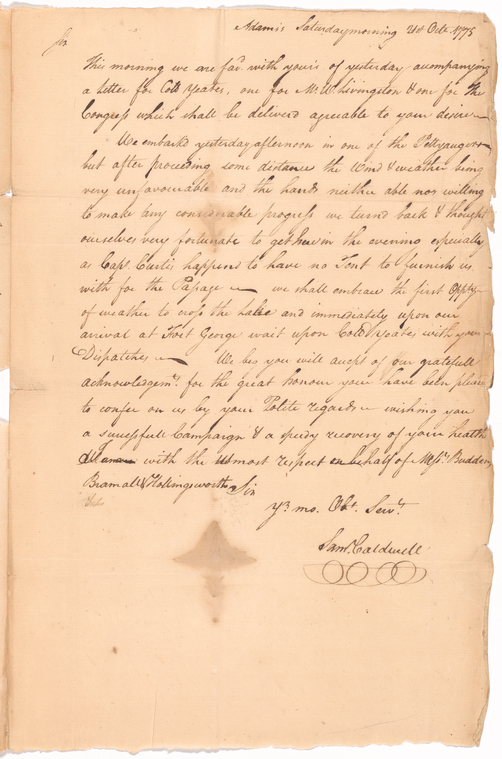 Adams Saturday morning 21st Octr. 1775
Sir
This morning we are fav. with yours of yesterday accompanying
a letter for Colo Yeates, one for Mr. W. Livingston & one for the
Congress which shall be deliverd agreable to your desire
We embarkd yesterday afternoon in one of the Pettyaugers
but after proceeding some distance the Wind & weather being
very unfavourable and the hands neither able nor willing
to make any considerable progress we turnd back & thought
ourselves very fortunate to get here in the evening especially
as Capt. Curtis happend to have no Tent to furnish us
with for the Passage we shall embrace the first Oppty
of weather to cross the Lake and immediately upon our
arrival at Fort George wait upon Colo Yeates with your
Dispatches We beg you will accept of our gratefull
acknowledgemt. for the great honour you have been pleas
to confer on us by your Polite regards wishing you
a successfull Campaign & a speedy recovery of your health
with the utmost respect on behalf of Messrs. Budden,
Bramall & Hollingsworth Sir
Yr. mo. Obt. Servt.
Saml. Caldwell